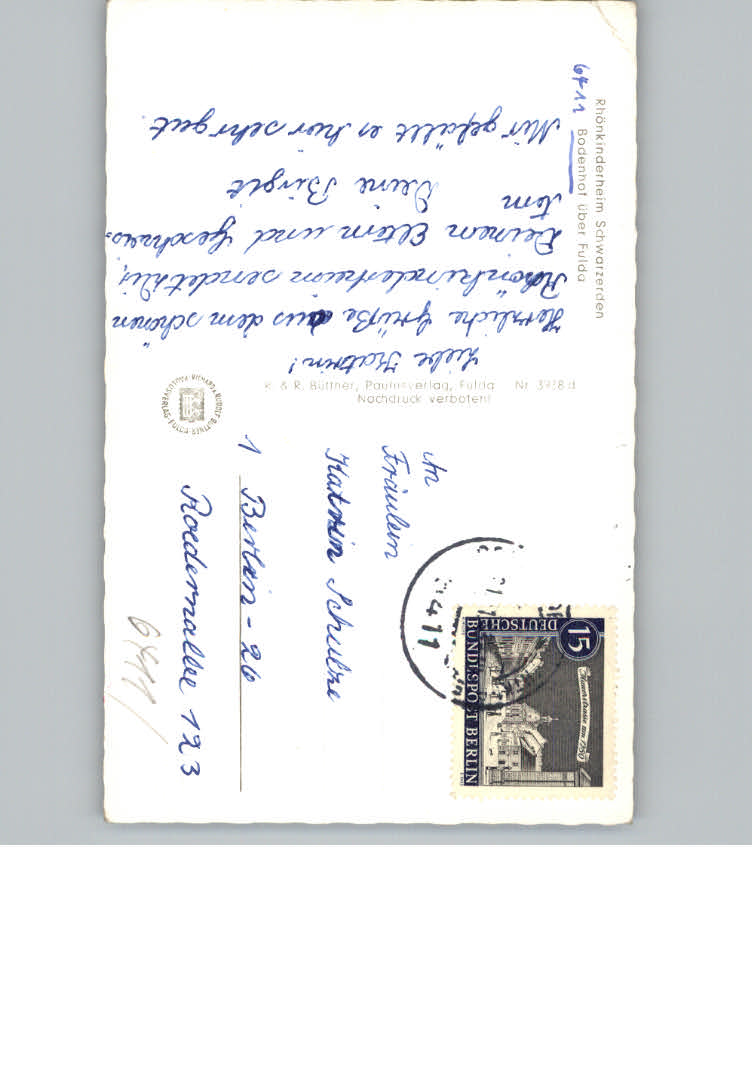 Rhönkinderheim Schwarzerden
6411 Bodenhof über Fulda
Liebe Katrin!
Herzliche Grüße aus dem schönen
Rhönkinderheim sendet Dir,
Deinen Eltern und Geschwis-
tern
Deine Birgit
Mir gefällt es hier sehr gut.
R. & R. Büttner, Paulusverlag, Fulda Nr. 3918d
Nachdruck verboten!
PAULUSVERLAG · RICHARD & RUDOLF BÜTTNER · FULDA
An
Fräulein
Katrin Schulze
1 Berlin - 26
Roedernallee 123
6411/
15
DEUTSCHE
BUNDESPOST BERLIN
Mauerstrasse um 1780
6411